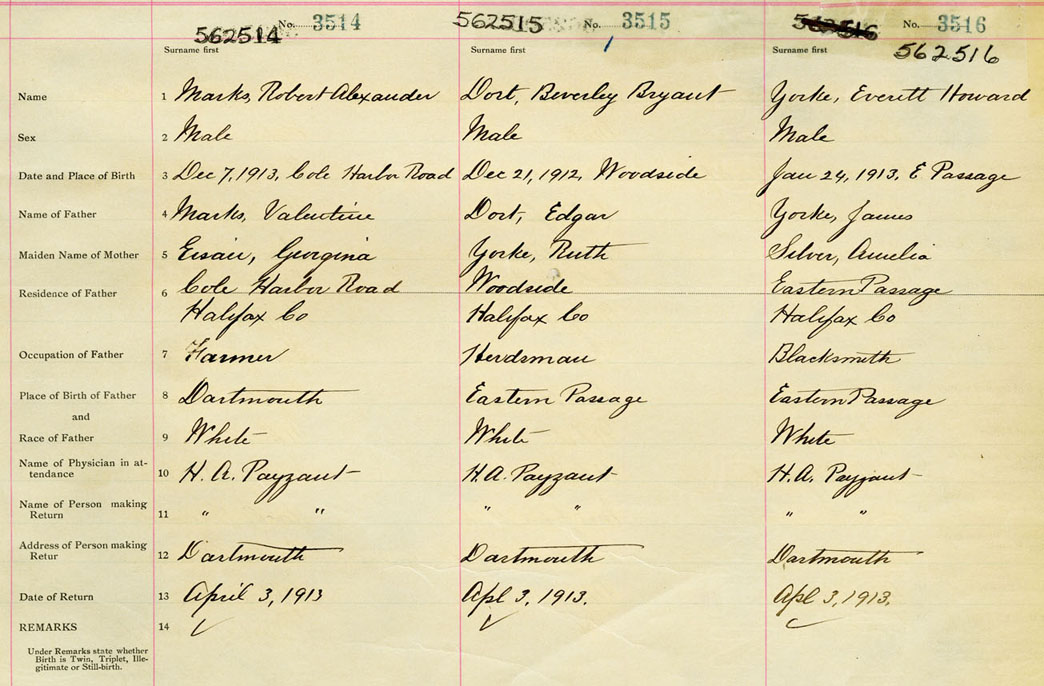 No. 3514 562515 No. 3515 No. 3516
562514 562516
Surname first Surname first Surname first
Name 1 Marks, Robert Alexander Dort, Beverley Bryant Yorke, Everett Howard
Sex 2 Male Male Male
Date and Place of Birth 3 Dec 7, 1913, Cole Harbor Road Dec 21, 1912, Woodside Jan 24, 1913, E Passage
Name of Father 4 Marks, Valentine Dort, Edgar Yorke, James
Maiden Name of Mother 5 Eisan, Georgina Yorke, Ruth Silver, Amelia
Residence of Father 6 Cole Harbor Road Woodside Eastern Passage
Halifax Co Halifax Co Halifax Co
Occupation of Father 7 Farmer Herdsman Blacksmith
Place of Birth of Father 8 Dartmouth Eastern Passage Eastern Passage
and
Race of Father 9 White White White
Name of Physician in at-
tendance 10 H. A. Payzant H. A. Payzant H. A. Payzant
Name of Person making
Return 11 " " " " " "
Address of Person making
Retur 12 Dartmouth Dartmouth Dartmouth
Date of Return 13 April 3, 1913 Apl 3, 1913. Apl 3, 1913.
REMARKS 14 ✓ ✓ ✓
Under Remarks state whether
Birth is Twin, Triplet, Ille-
gitimate or Still-birth.